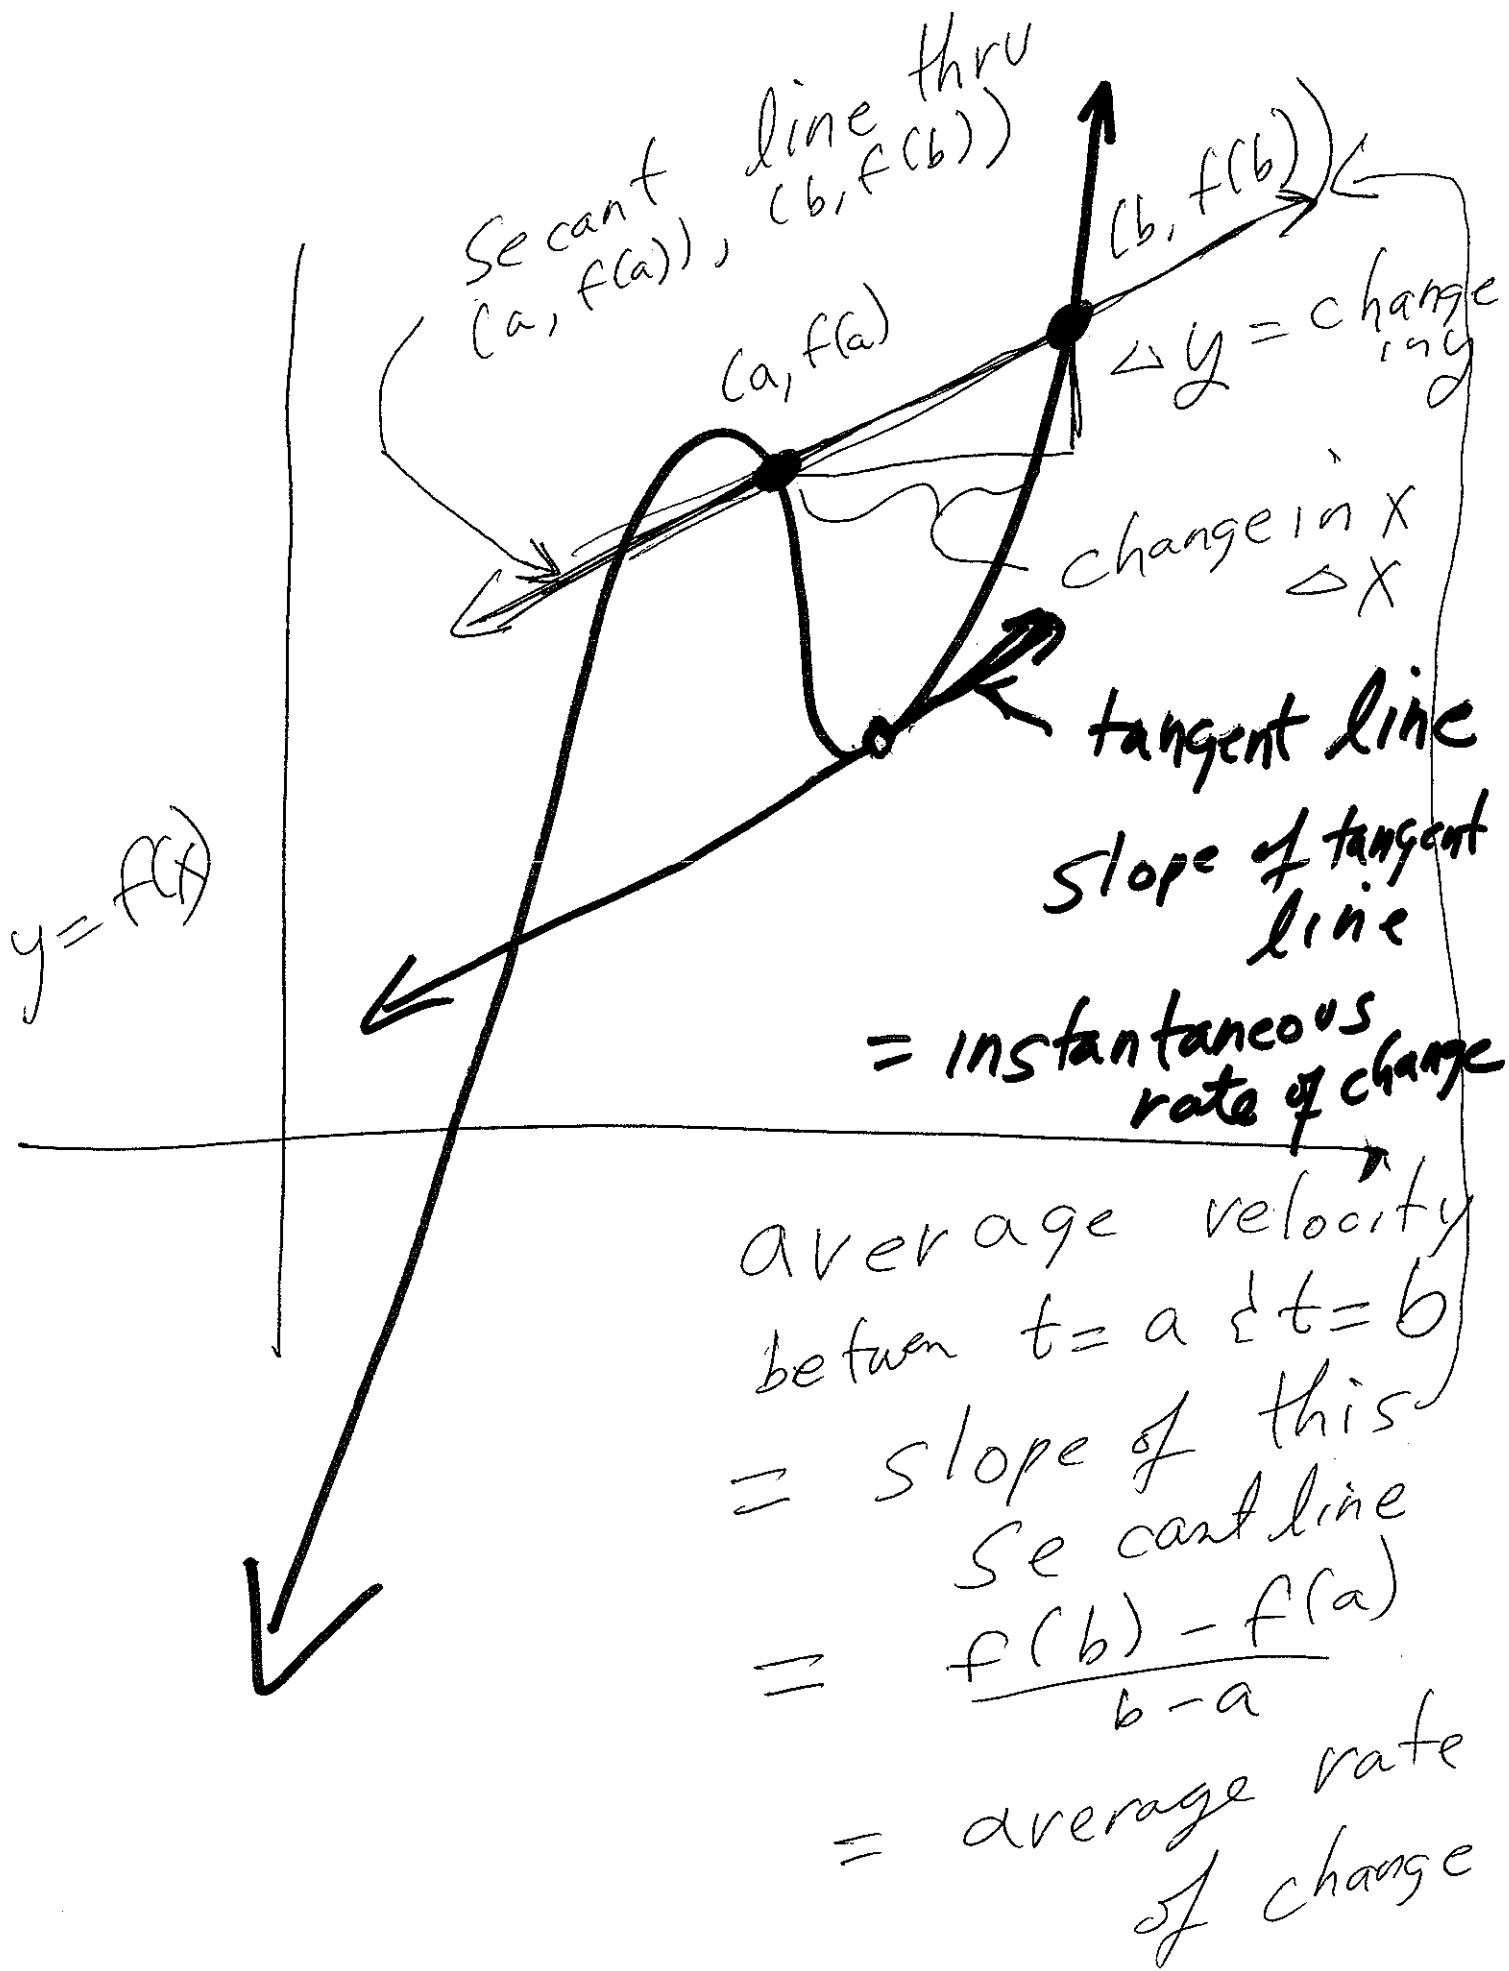 secant line thru
(a, f(a)), (b, f(b))
(b, f(b))
(a, f(a)
△y = change
in y
change in x
△x
tangent line
slope of tangent
line
= instantaneous
rate of change
y = f(x)
average velocity
between t = a & t = b
= slope of this
secant line
= f(b) - f(a)
b - a
= average rate
of change